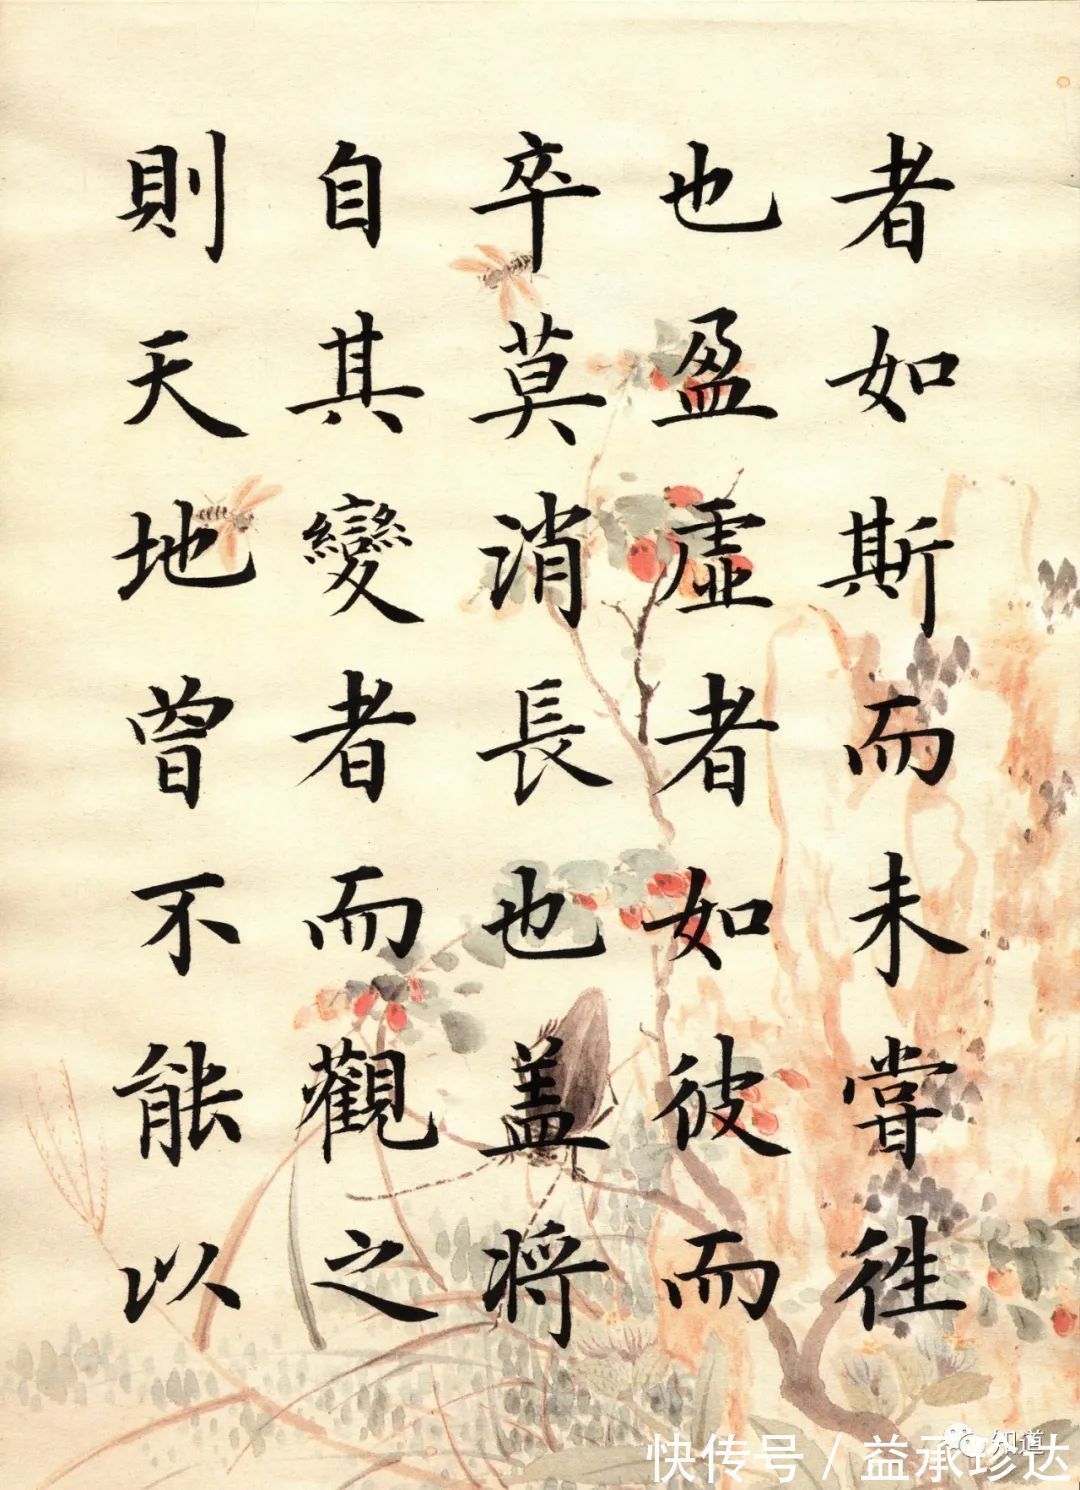 者如斯而未嘗徃
也盈虛者如彼而
卒莫消長也盖將
自其變者而觀之
則天地曾不能以
知道
快传号 / 益承珍达